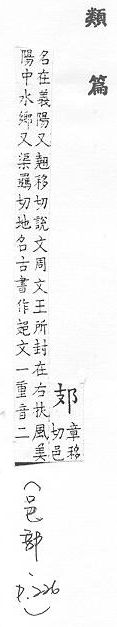 類篇
𨙸
章移
切邑
名在義陽又翹移切說文周文王所封在右扶風美
陽中水鄉又渠羈切地名古書作文一重音二
(邑部 p.226)